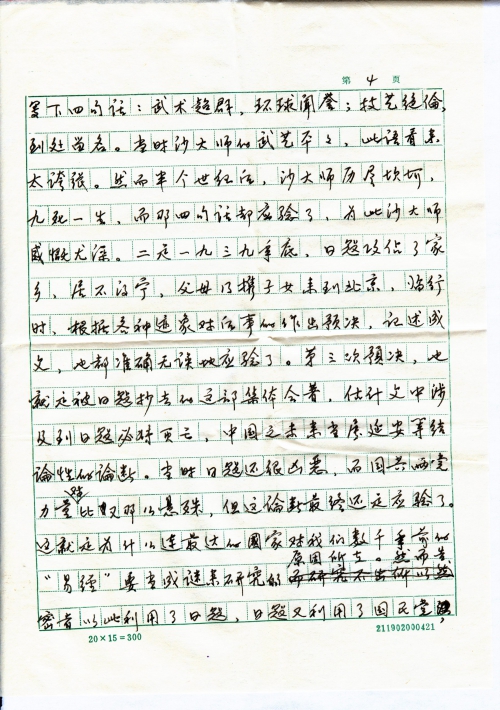 第 4 页
写下四句话：武术超群，环球闻誉；技艺绝伦，
到处留名。当时沙大师的武艺平平，此语看来
太夸张。然而半个世纪后，沙大师历尽坎坷，
九死一生，而那四句话却应验了，为此沙大师
感慨尤深。二是一九三九年底，日寇攻占了家
乡，居不得宁，父母乃携子女来到北京，临行
时，根据各种迹象对后事的作出预决，记述成
文，也都准确无误地应验了。第三次预决，也
就是被日寇抄去的这部集体合著，估计文中涉
及到日寇必将灭亡，中国之未来当属延安等结
论性的论断。当时日寇还很凶恶，而国共两党
力量对比又那么悬殊，但这论断最终还是应验了。
这就是为什么连最发达的国家对我们数千年前的
"易经"要当成谜来研究的原因所在。然而告
密者以此利用了日寇，日寇又利用了国民党
20×15=300
211902000421